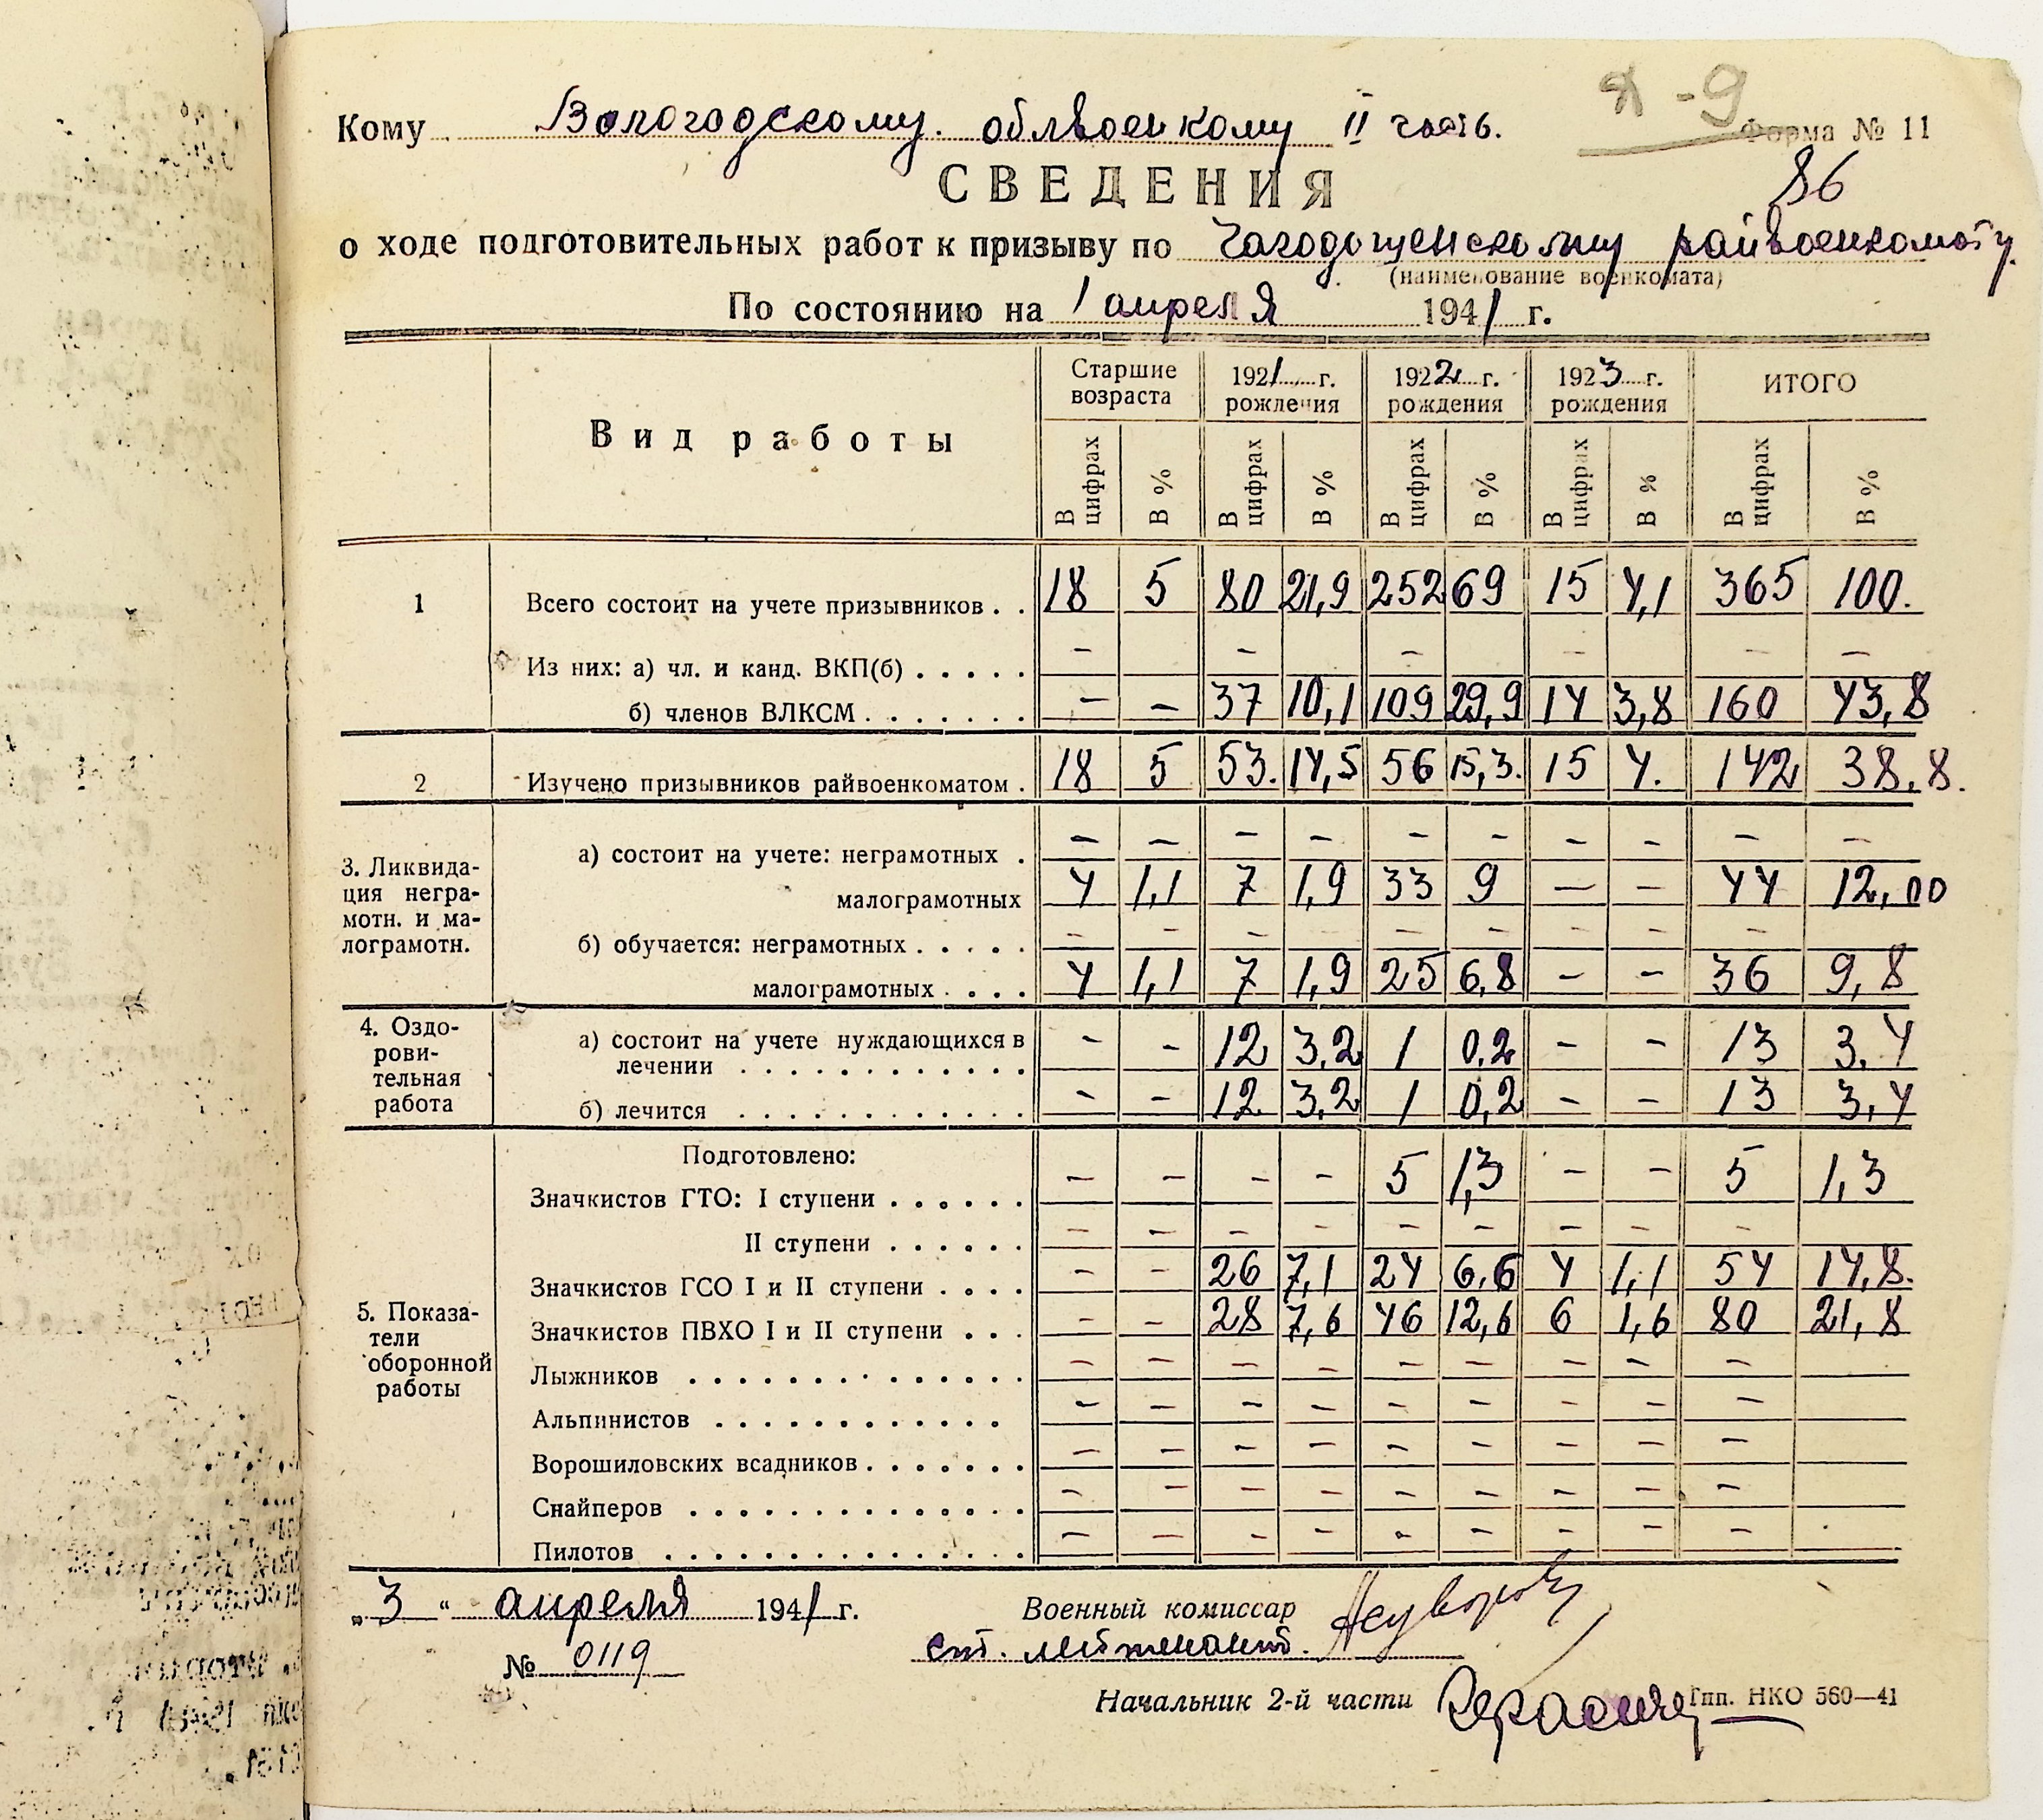 Я-9
Кому Вологодскому облвоенкому II часть.
Форма № 11
86
СВЕДЕНИЯ
о ходе подготовительных работ к призыву по Чагодощенскому райвоенкомату.
(наименование военкомата)
По состоянию на 1 апреля 1941 г.
Вид работы | Старшие возраста | 1921 г. рождения | 1922 г. рождения | 1923 г. рождения | ИТОГО
В цифрах | В % | В цифрах | В % | В цифрах | В % | В цифрах | В % | В цифрах | В %
1 Всего состоит на учете призывников . . 18 5 80 21,9 252 69 15 4,1 365 100.
Из них: а) чл. и канд. ВКП(б) . . . . . – – – – – –
б) членов ВЛКСМ . . . . . . . – – 37 10,1 109 29,9 14 3,8 160 43,8
2 Изучено призывников райвоенкоматом . 18 5 53. 14,5 56 15,3. 15 4. 142 38,8.
3. Ликвида-
ция негра-
мотн. и ма-
лограмотн.
а) состоит на учете: неграмотных . – – – – – – – – – –
малограмотных 4 1,1 7 1,9 33 9 – – 44 12,00
б) обучается: неграмотных . . . . . – – – – – – – – –
малограмотных . . . . 4 1,1 7 1,9 25 6,8 – – 36 9,8
4. Оздо-
рови-
тельная
работа
а) состоит на учете нуждающихся в
лечении . . . . . . . . . . . . – – 12 3,2 1 0,2 – – 13 3,4
б) лечится . . . . . . . . . . . . – – 12 3,2 1 0,2 – – 13 3,4
5. Показа-
тели
оборонной
работы
Подготовлено:
Значкистов ГТО: I ступени . . . . . . – – – – 5 1,3 – – 5 1,3
II ступени . . . . . . – – – – – – – – –
Значкистов ГСО I и II ступени . . . . – – 26 7,1 24 6,6 4 1,1 54 14,8.
Значкистов ПВХО I и II ступени . . . – – 28 7,6 46 12,6 6 1,6 80 21,8
Лыжников . . . . . . . . . . . . . . – – – – – – – – –
Альпинистов . . . . . . . . . . . . – – – – – – – – –
Ворошиловских всадников . . . . . . . – – – – – – – – –
Снайперов . . . . . . . . . . . . . . – – – – – – – – –
Пилотов . . . . . . . . . . . . . . . – – – – – – – – –
„3“ апреля 1941 г.
Военный комиссар
ст. лейтенант.
№ 0119
Начальник 2-й части
Тип. НКО 560—41